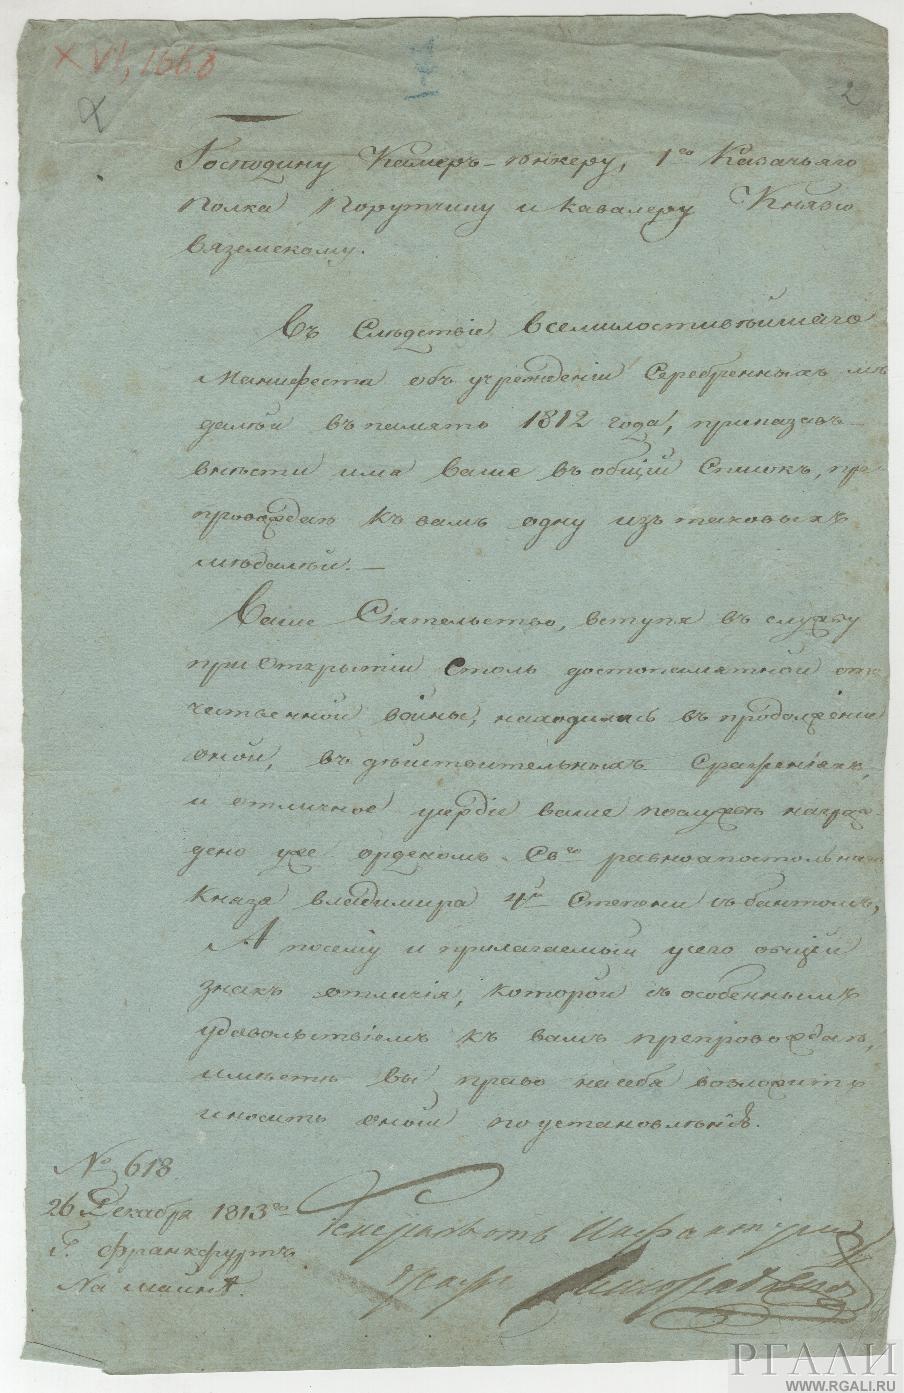 XVI, 1668
2
Господину Камеръ-юнкеру, 1го Казачьяго
полка Порутчику и кавалеру Князю
Вяземскому.
Въ Следствіе всемилостивейшаго
Манифеста объ учреждении Серебренныхъ ме
далей въ память 1812 года, приказавъ
внести имя ваше въ общій списокъ, пре
провождаю къ вамъ одну изъ таковыхъ
медалей. —
Ваше Сіятельство, вступя въ службу
при открытии столь достопамятной оте
чественной войны, находились въ продолжение
оной, въ действительныхъ сраженіяхъ,
и отличное усердіе ваше по службе награж
дено уже орденомъ Свго равноапостольнаго
Князя Владимира 4й Степени съ бантомъ,
А посему и прилагаемый у сего общій
знакъ отличія, которой съ особеннымъ
удовольствіемъ къ вамъ препровождаю,
имеете вы право на себя возложить
и носить оной по установленію.
№ 618
26 Декабря 1813го
Г. Франкфуртъ
На Майне.
Генералъ отъ Инфантеріи
Графъ Милорадовичь
РГАЛИ
WWW.RGALI.RU